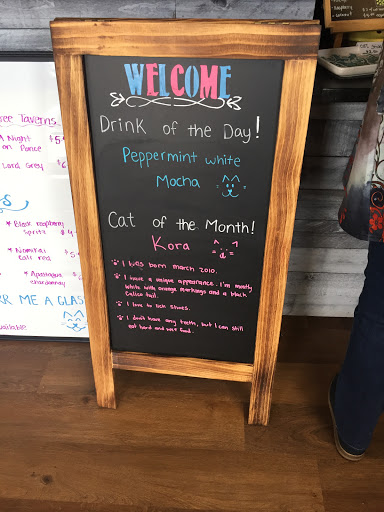 WELCOME
Drink of the Day!
Peppermint white
Mocha
Cat of the Month!
Kora
I was born march 2010.
I have a unique appearance. I'm mostly
white with orange markings and a black
Calico tail.
I love to lick shoes.
I don't have any teeth, but I can still
eat hard and wet food.
ree Taverns
A Night
on Ponce
$5
Lord Grey
* Black raspberry
spritz
* Nomikai
* Apothogue
chardonnay
RR ME A GLAS
available